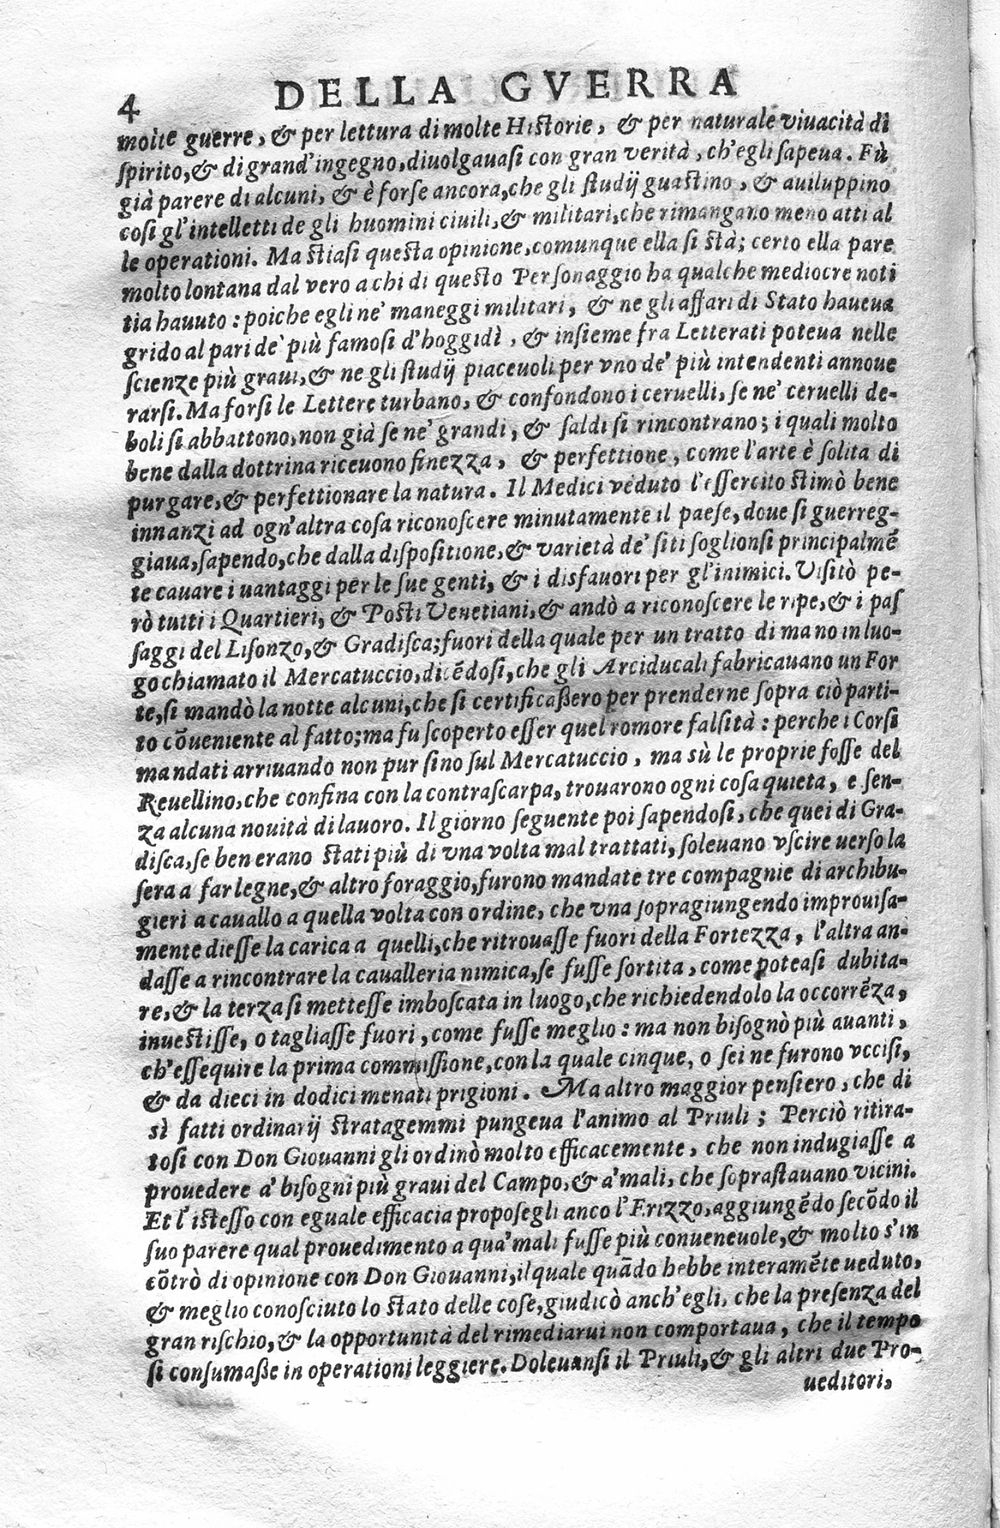 4 DELLA GVERRA
molte guerre, & per lettura di molte Historie, & per naturale viuacità di
spirito, & di grand'ingegno, diuolgauasi con gran verità, ch'egli sapeua. Fù
già parere di alcuni, & è forse ancora, che gli studij guastino, & auiluppino
cosi gl'intelletti de gli huomini ciuili, & militari, che rimangano meno atti al
le operationi. Ma stiasi questa opinione, comunque ella si stà; certo ella pare
molto lontana dal vero a chi di questo Personaggio ha qualche mediocre noti
tia hauuto: poiche egli ne' maneggi militari, & ne gli affari di Stato haueua
grido al pari de' più famosi d'hoggidì, & insieme fra Letterati poteua nelle
scienze più graui, & ne gli studij piaceuoli per vno de' più intendenti annoue
rarsi. Ma forsi le Lettere turbano, & confondono i ceruelli, se ne' ceruelli de-
boli si abbattono, non già se ne' grandi, & saldi si rincontrano; i quali molto
bene dalla dottrina riceuono finezza, & perfettione, come l'arte è solita di
purgare, & perfettionare la natura. Il Medici veduto l'essercito stimò bene
innanzi ad ogn'altra cosa riconoscere minutamente il paese, doue si guerreg-
giaua, sapendo, che dalla dispositione, & varietà de' siti soglionsi principalmē
te cauare i vantaggi per le sue genti, & i disfauori per gl'inimici. Visitò pe-
rò tutti i Quartieri, & Posti Venetiani, & andò a riconoscere le ripe, & i pas
saggi del Lisonzo, & Gradisca; fuori della quale per un tratto di mano in luo-
go chiamato il Mercatuccio, dicēdosi, che gli Arciducali fabricauano un For
te, si mandò la notte alcuni, che si certificaßero per prenderne sopra ciò parti-
to cōueniente al fatto; ma fu scoperto esser quel romore falsità: perche i Corsi
mandati arriuando non pur sino sul Mercatuccio, ma sù le proprie fosse del
Reuellino, che confina con la contrascarpa, trouarono ogni cosa quieta, e sen-
za alcuna nouità di lauoro. Il giorno seguente poi sapendosi, che quei di Gra-
disca, se ben erano stati più di vna volta mal trattati, soleuano vscire verso la
sera a far legne, & altro foraggio, furono mandate tre compagnie di archibu-
gieri a cauallo a quella volta con ordine, che vna sopragiungendo improuisa-
mente diesse la carica a quelli, che ritrouasse fuori della Fortezza, l'altra an-
dasse a rincontrare la caualleria nimica, se fusse sortita, come poteasi dubita-
re, & la terza si mettesse imboscata in luogo, che richiedendolo la occorrēza,
inuestisse, o tagliasse fuori, come fusse meglio: ma non bisognò più auanti,
ch'essequire la prima commissione, con la quale cinque, o sei ne furono vccisi,
& da dieci in dodici menati prigioni. Ma altro maggior pensiero, che di
sì fatti ordinarij stratagemmi pungeua l'animo al Priuli; Perciò ritira-
tosi con Don Giouanni gli ordinò molto efficacemente, che non indugiasse a
prouedere a' bisogni più graui del Campo, & a' mali, che soprastauano vicini.
Et l'istesso con eguale efficacia proposegli anco l'Erizzo, aggiungēdo secōdo il
suo parere qual prouedimento a qua' mali fusse più conueneuole, & molto s'in
cōtrò di opinione con Don Giouanni, il quale quādo hebbe interamēte veduto,
& meglio conosciuto lo stato delle cose, giudicò anch'egli, che la presenza del
gran rischio, & la opportunità del rimediarui non comportaua, che il tempo
si consumaße in operationi leggiere. Doleuansi il Priuli, & gli altri due Pro-
ueditori,